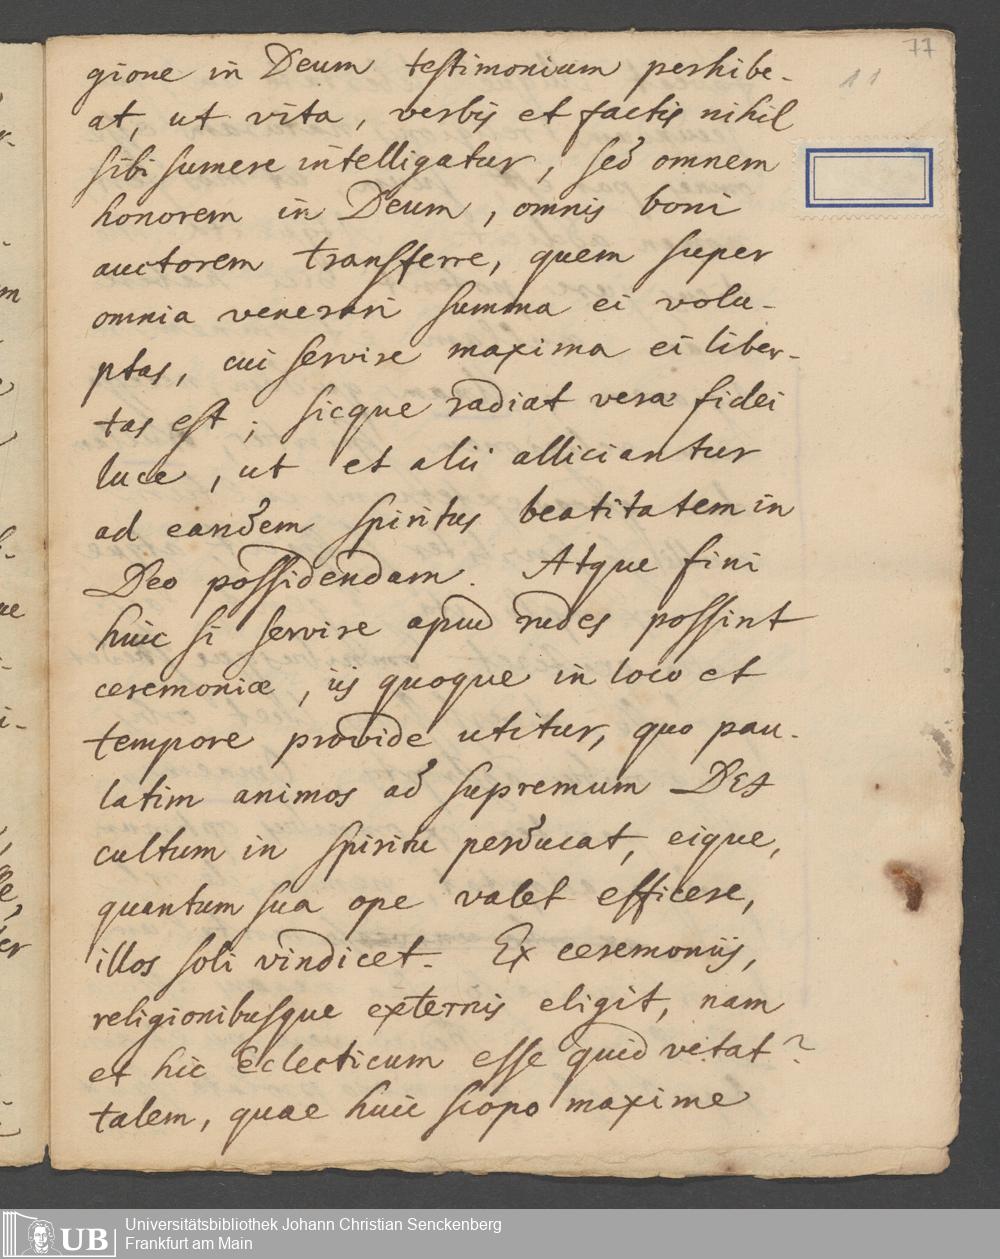 77
11
gione in Deum testimonium perhibe-
at, ut vita, verbis et factis nihil
sibi sumere intelligatur, sed omnem
honorem in Deum, omnis boni
auctorem transferre, quem super
omnia venerari summa ei volu-
ptas, cui servire maxima ei liber-
tas est; sicque radiat veræ fidei
luce, ut et alii alliciantur
ad eandem spiritus beatitatem in
Deo possidendam. Atque fini
huic si servire apud rudes possint
ceremoniæ, iis quoque in loco et
tempore provide utitur, quo pau-
latim animos ad supremum DEI
cultum in spiritu perducat, eique,
quantum sua ope valet efficere,
illos soli vindicet. Ex ceremoniis,
religionibusque externis eligit, nam
et hic Eclecticum esse quid vetat?
talem, quae huic scopo maxime
UB
Universitätsbibliothek Johann Christian Senckenberg
Frankfurt am Main